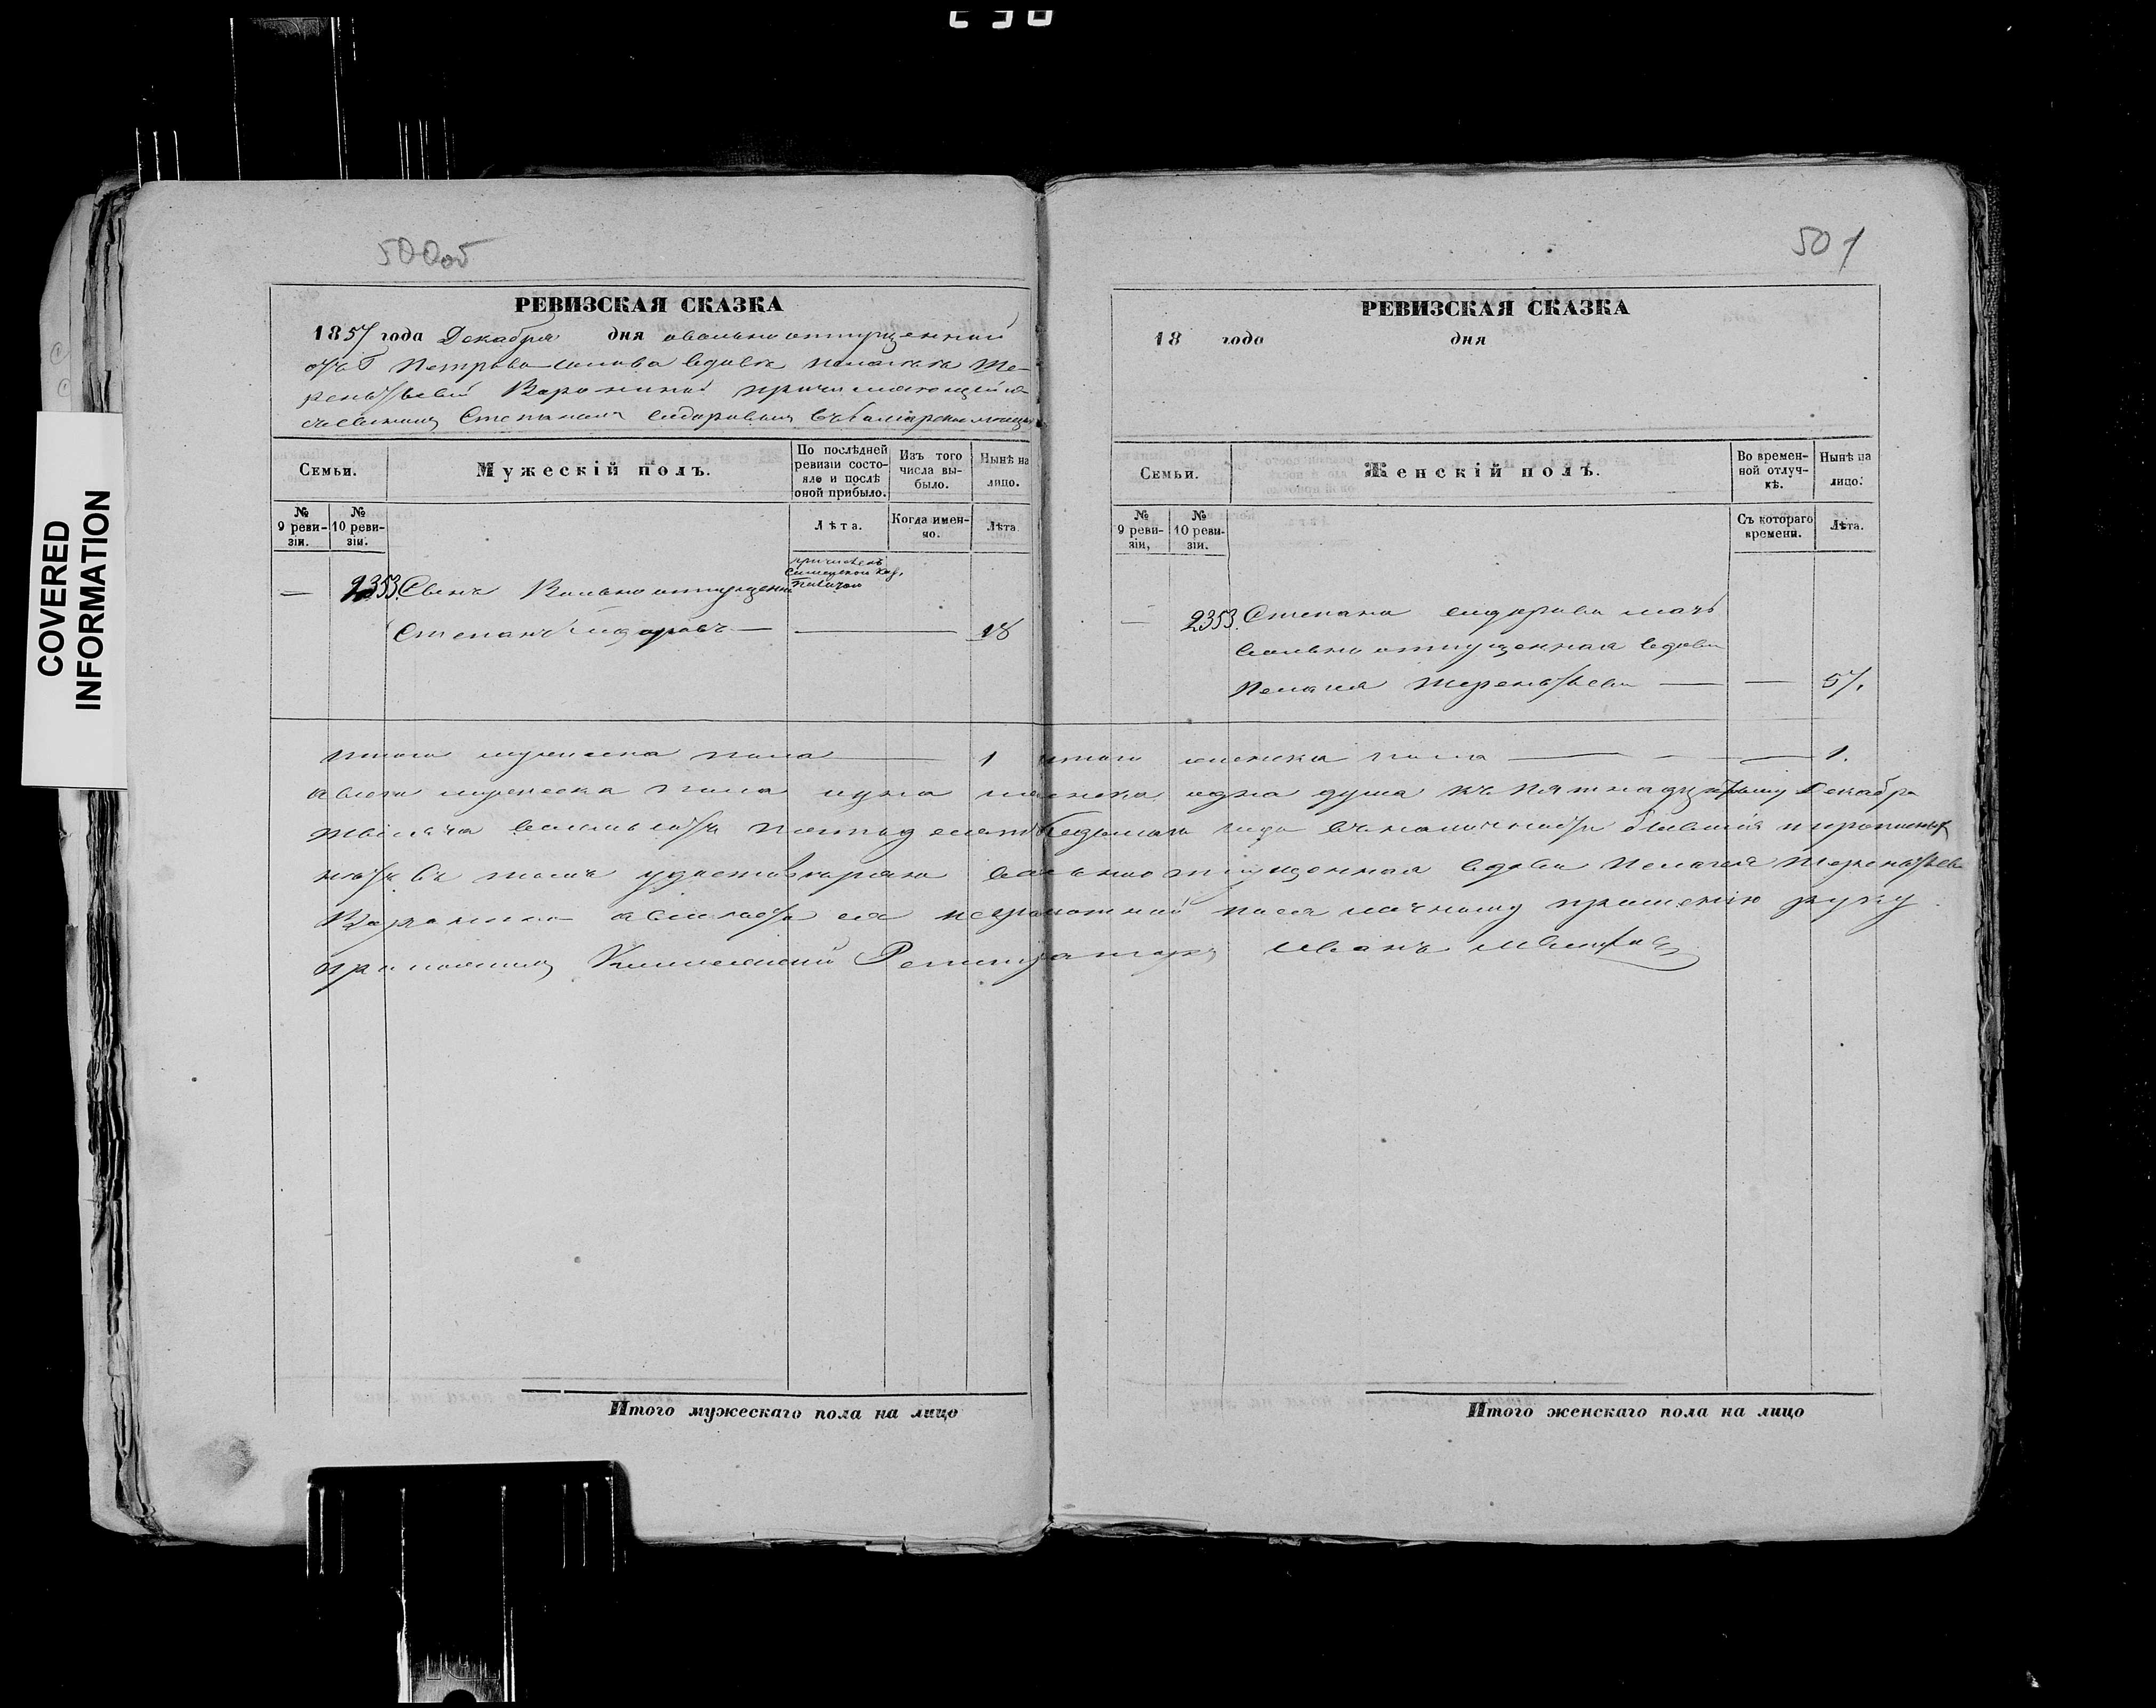 230
COVERED
INFORMATION
500об
РЕВИЗСКАЯ СКАЗКА
1857 года Декабря дня о вольноотпущенной
отъ Петрова вдове Пелагее Те-
рентьевой Ворониной причисляющейся
съ сыномъ Степаномъ Сидоровымъ въ
Семьи.
Мужескій полъ.
По послѣдней ревизіи состо-
яло и послѣ оной прибыло.
Изъ того числа вы-
было.
Нынѣ на лицо.
№ 9 реви-
зіи.
№ 10 реви-
зіи.
Лѣта.
Когда имен-
но.
Лѣта
причисленъ
Палатой
— 2353. Сынъ Вольноотпущенной
Степанъ Сидоровъ — — 18
Итого мужеска пола — 1
Итого мужескаго пола на лицо
501
РЕВИЗСКАЯ СКАЗКА
18 года дня
Семьи.
Женскій полъ.
Во времен-
ной отлуч-
кѣ.
Нынѣ на лицо.
№ 9 реви-
зіи,
№ 10 реви-
зіи.
Съ котораго времени.
Лѣта.
— 2353. Степана Сидорова мать
вольноотпущенная вдова
Пелагея Терентьева — — 57.
итого женска пола — 1.
а всего мужеска пола одна женска одна душа къ пятнадцатому Декабря
тысяча восемьсотъ пятьдесятъ седьмаго года въ наличности
въ томъ удостовѣряю вольноотпущенная вдова Пелагея Терентьева
Воронина а вместо ея неграмотной по ея личному прошенію руку
приложилъ Регистраторъ Иванъ
Итого женскаго пола на лицо